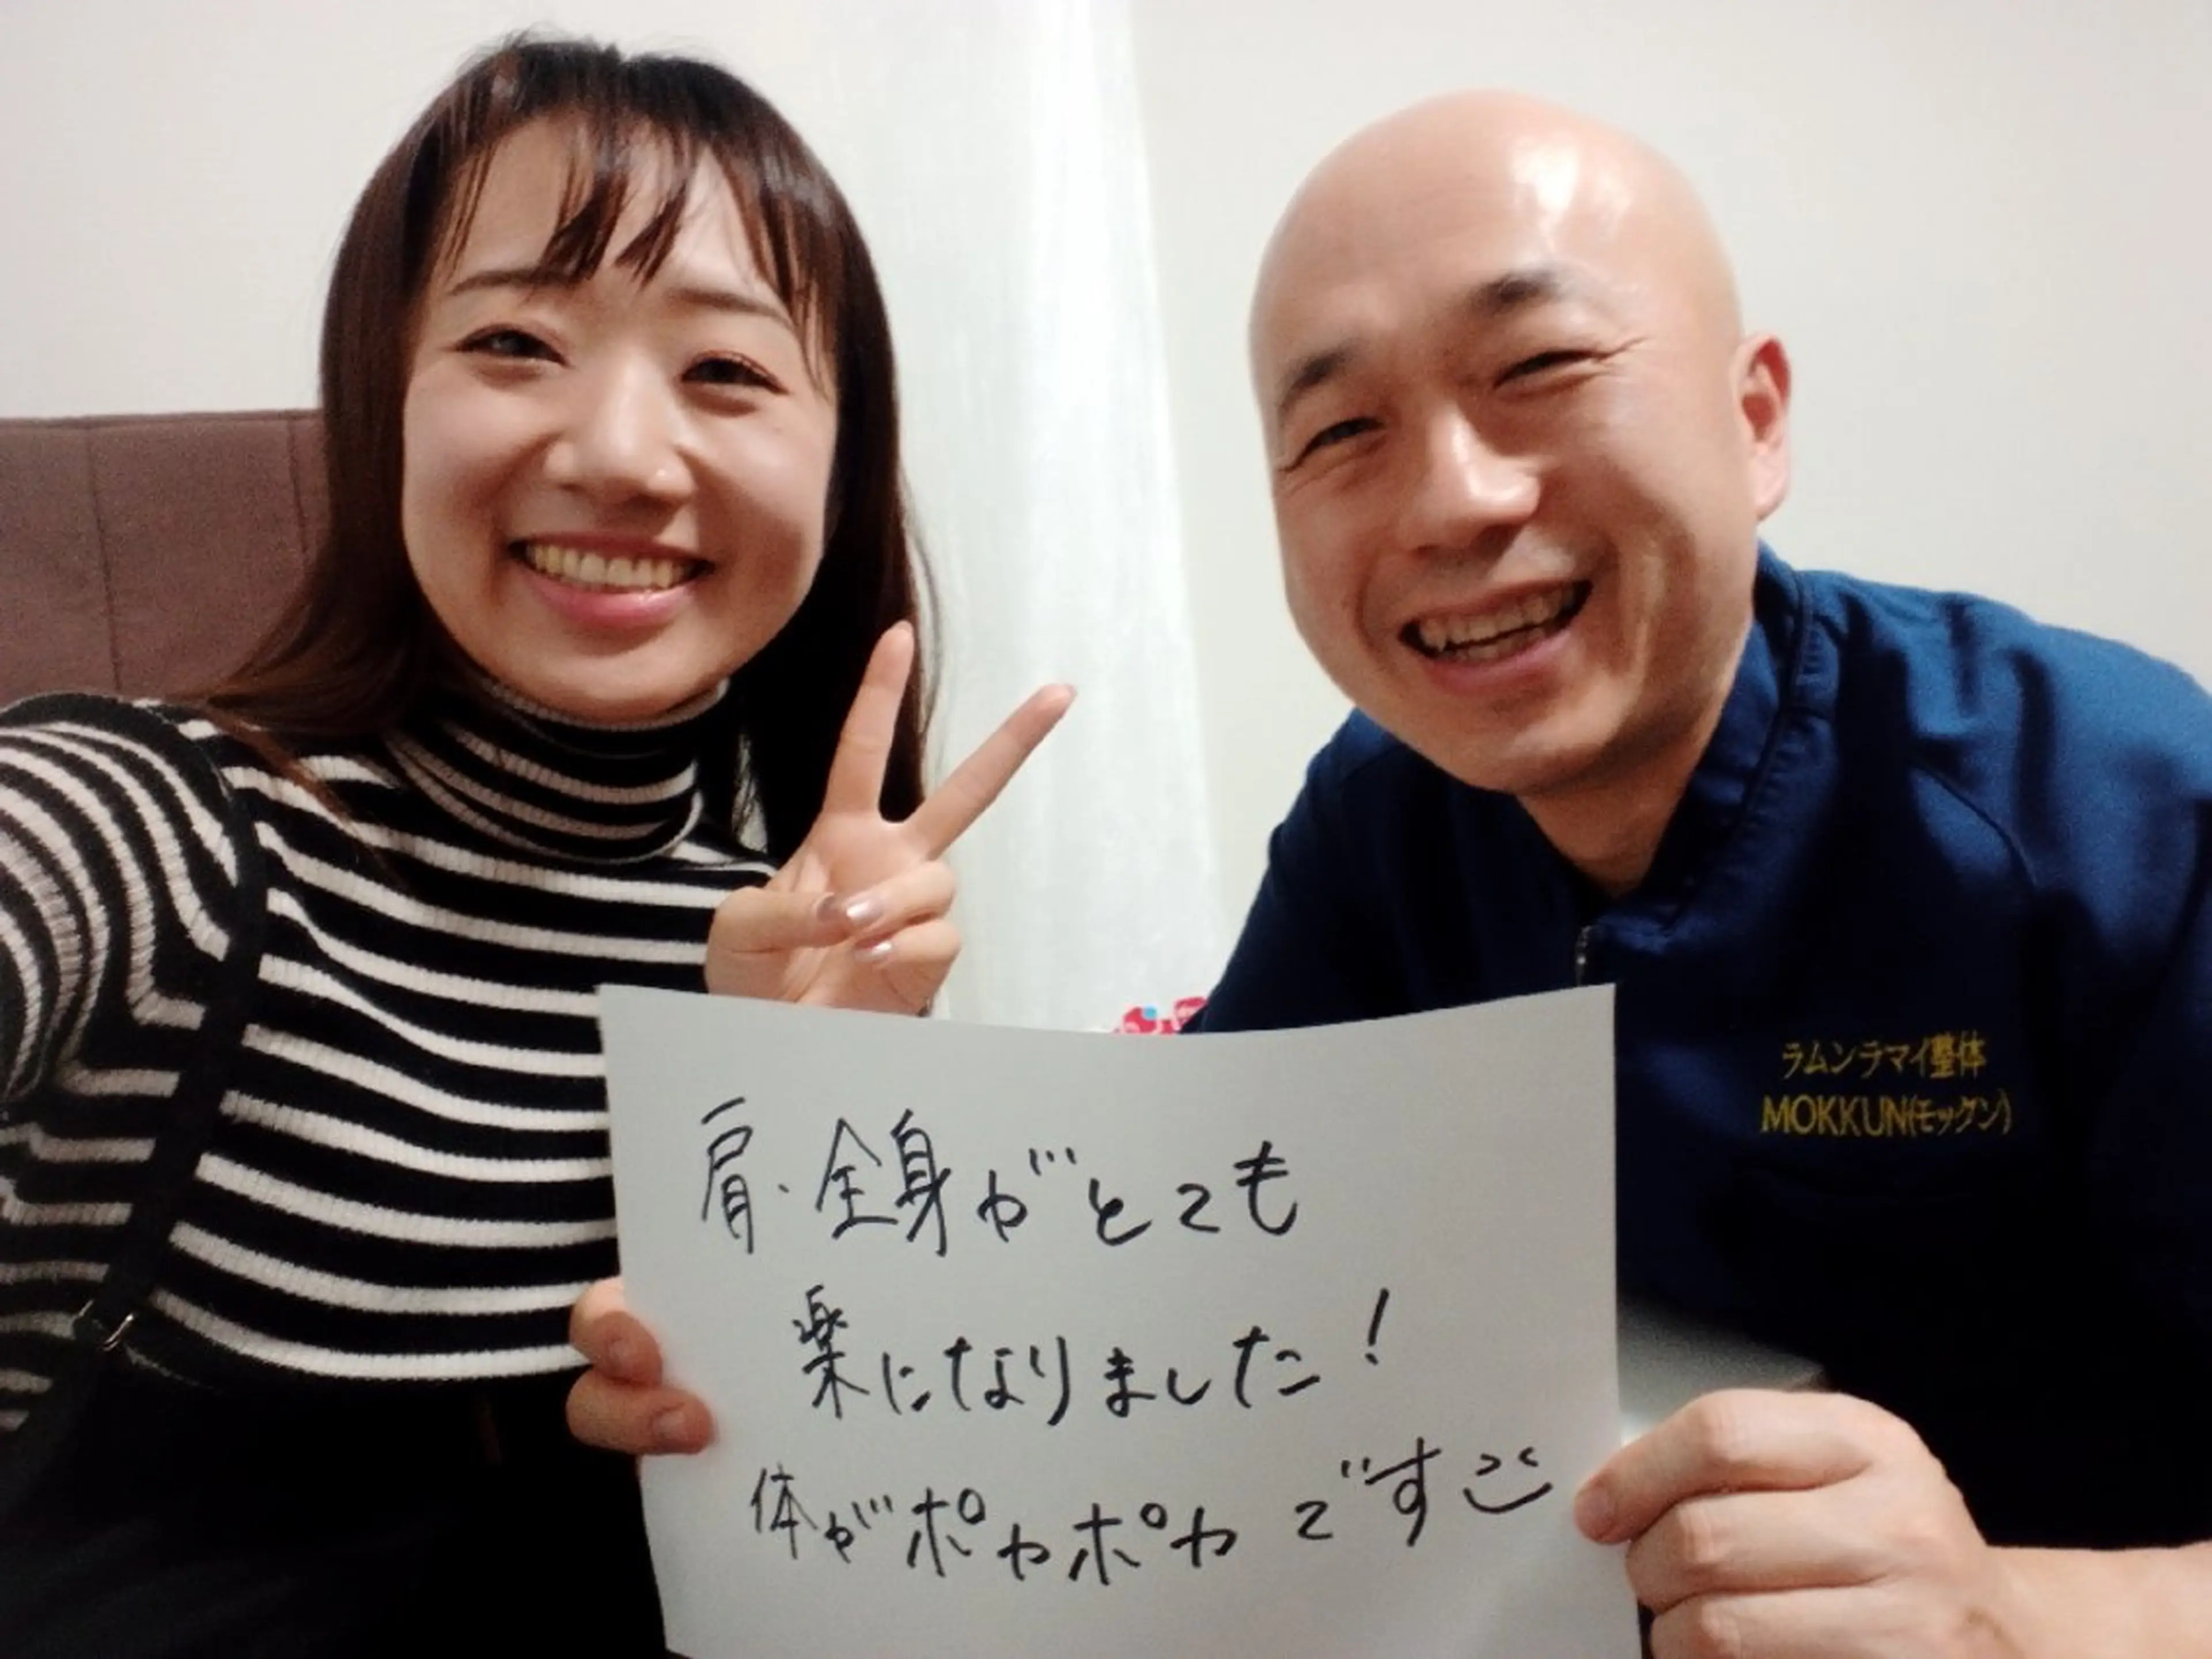 肩・全身がとても
楽になりました！
体がポカポカです
ラムンラマイ整体
MOKKUN(モックン)